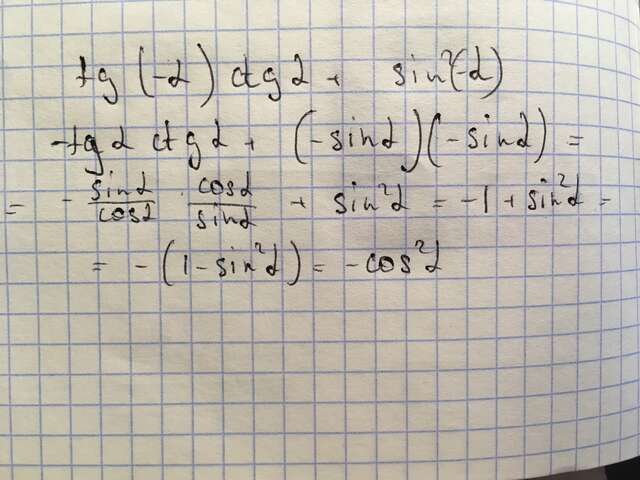 tg (-α) ctg α + sin²(-α)
-tg α ctg α + (-sin α)(-sin α) =
= - sin α/cos α · cos α/sin α + sin² α = -1 + sin² α =
= - (1 - sin² α) = - cos² α